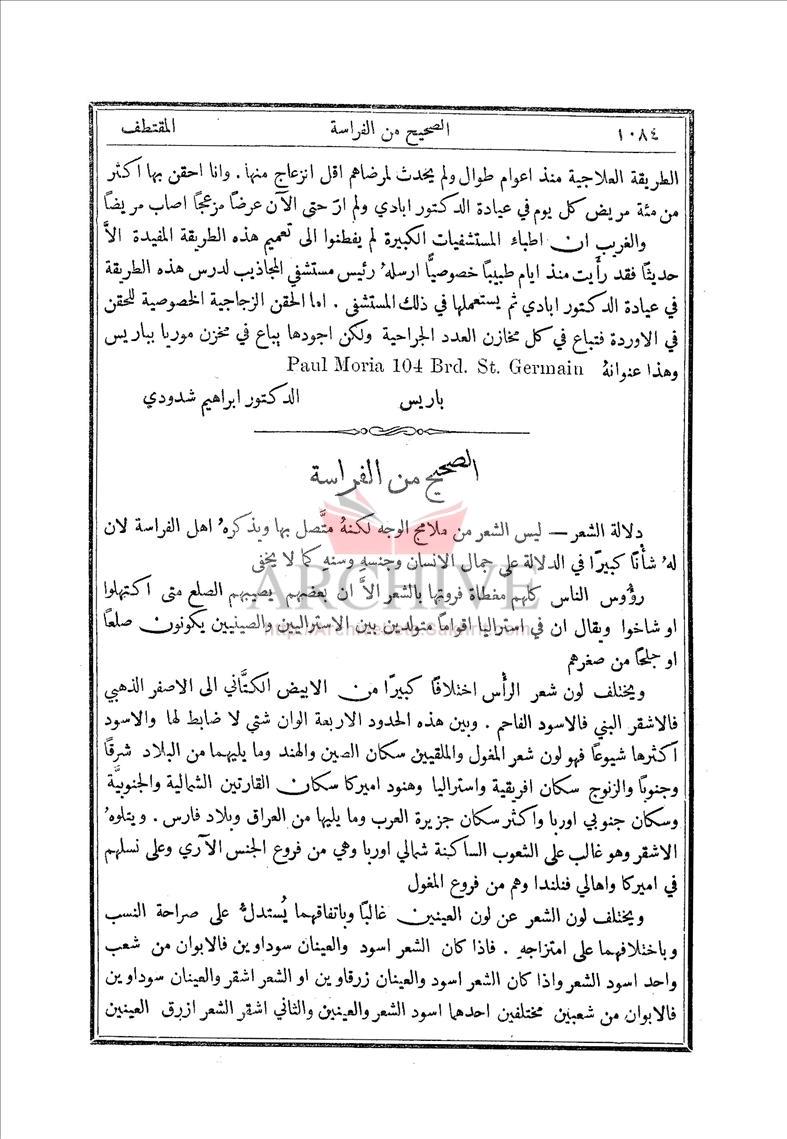 ١٠٨٤ الصحيح من الفراسة المقتطف
الطريقة العلاجية منذ اعوام طوال ولم يحدث لمرضاهم اقل انزعاج منها . وانا احقن بها اكثر
من مئة مريض كل يوم في عيادة الدكتور ابادي ولم ارَ حتى الآن عرضاً مزعجاً اصاب مريضاً
والغريب ان اطباء المستشفيات الكبيرة لم يفطنوا الى تعميم هذه الطريقة المفيدة الاَّ
حديثاً فقد رأَيت منذ ايام طبيباً خصوصيًّا ارسلهُ رئيس مستشفي المجاذيب لدرس هذه الطريقة
في عيادة الدكتور ابادي ثم يستعملها في ذلك المستشفى . اما الحقن الزجاجية الخصوصية للحقن
في الاوردة فتباع في كل مخازن العدد الجراحية ولكن اجودها يباع في مخزن موريا بباريس
وهذا عنوانهُ Paul Moria 104 Brd. St. Germain
باريس الدكتور ابراهيم شدودي
الصحيح من الفراسة
دلالة الشعر — ليس الشعر من ملامح الوجه لكنهُ متَّصل بها ويذكرهُ اهل الفراسة لان
لهُ شأنًا كبيرًا في الدلالة على جمال الانسان وجنسهِ وسنهِ كما لا يخفى
رؤوس الناس كلهم مغطاة فروتها بالشعر الاَّ ان بعضهم يصيبهم الصلع متى اكتهلوا
او شاخوا ويقال ان في استراليا اقوامًا متولدين بين الاستراليين والصينيين يكونون صلعًا
او جلحًا من صغرهم
ويختلف لون شعر الرأس اختلافًا كبيرًا من الابيض الكتَّاني الى الاصفر الذهبي
فالاشقر البني فالاسود الفاحم . وبين هذه الحدود الاربعة الوان شتى لا ضابط لها والاسود
اكثرها شيوعًا فهو لون شعر المغول والملقيين سكان الصين والهند وما يليهما من البلاد شرقًا
وجنوبًا والزنوج سكان افريقية واستراليا وهنود اميركا سكان القارتين الشمالية والجنوبيَّة
وسكان جنوبي اوربا واكثر سكان جزيرة العرب وما يليها من العراق وبلاد فارس . ويتلوهُ
الاشقر وهو غالب على الشعوب الساكنة شمالي اوربا وهي من فروع الجنس الآري وعلى نسلهم
في اميركا واهالي فنلندا وهم من فروع المغول
ويختلف لون الشعر عن لون العينين غالبًا وباتفاقهما يُستدلُّ على صراحة النسب
وباختلافهما على امتزاجهِ . فاذا كان الشعر اسود والعينان سوداوين فالابوان من شعب
واحد اسود الشعر واذا كان الشعر اسود والعينان زرقاوين او الشعر اشقر والعينان سوداوين
فالابوان من شعبين مختلفين احدهما اسود الشعر والعينين والثاني اشقر الشعر ازرق العينين
ARCHIVE